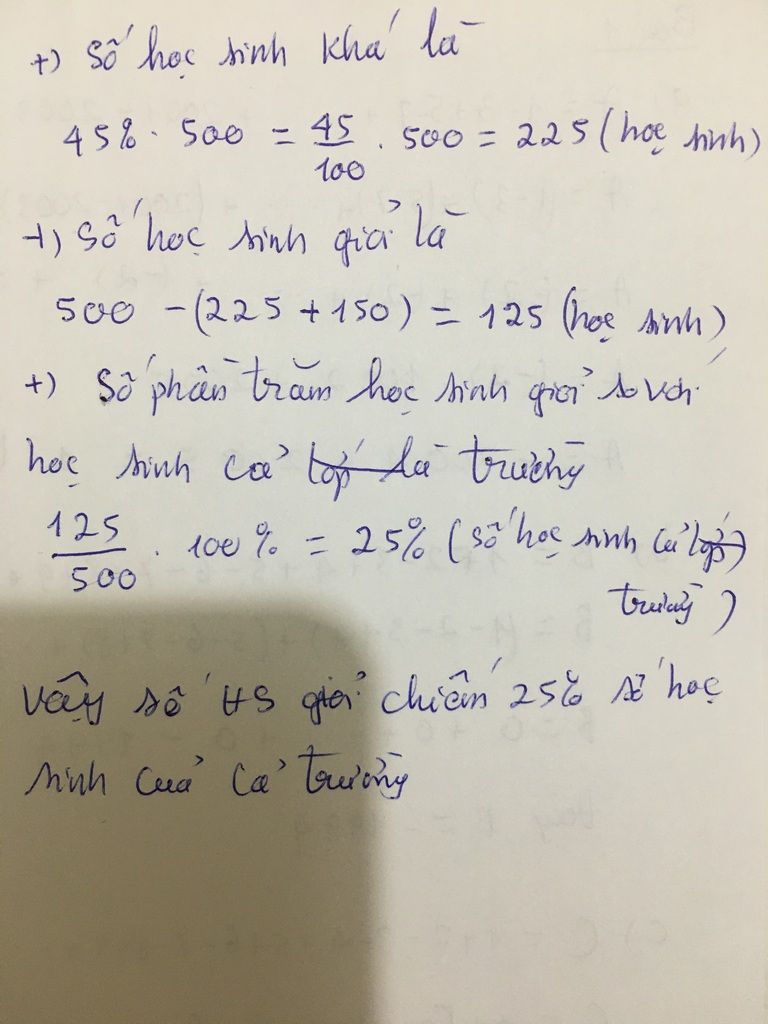 +) Số học sinh khá là
45% . 500 = 45/100 . 500 = 225 (học sinh)
+) Số học sinh giỏi là
500 - (225 + 150) = 125 (học sinh)
+) Số phần trăm học sinh giỏi so với
học sinh cả lớp là trường
125/500 . 100% = 25% (số học sinh cả lớp)
trường)
Vậy số HS giỏi chiếm 25% số học
sinh của cả trường